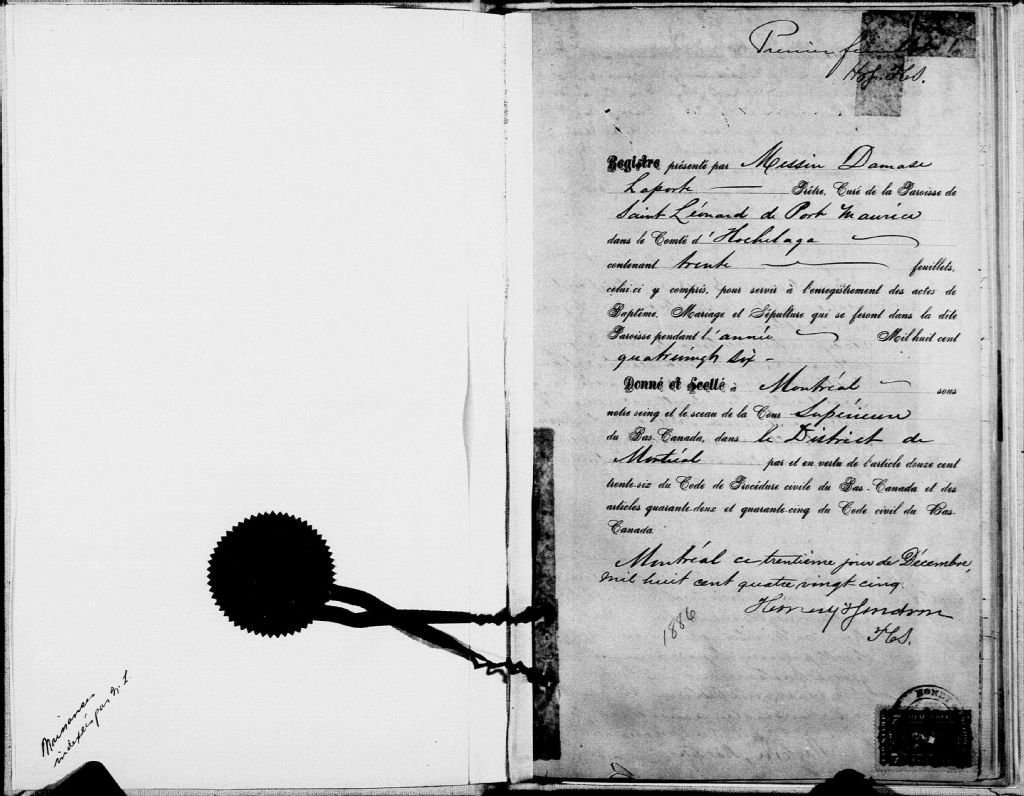 Naissances
indexées par N. L.
Premier feuillet
Registre présenté par Messire Damase
Laporte — Prêtre, Curé de la Paroisse de
Saint Léonard de Port Maurice
dans le Comté d'Hochelaga
contenant trente feuillets,
celui-ci y compris, pour servir à l'enregistrement des actes de
Baptême, Mariage et Sépulture qui se feront dans la dite
Paroisse pendant l'année Mil huit cent
quatrevingt six -
Donné et Scellé à Montréal sous
notre seing et le sceau de la Cour Supérieure
du Bas-Canada, dans le District de
Montréal par et en vertu de l'article douze cent
trente-six du Code de Procédure civile du Bas-Canada et des
articles quarante-deux et quarante-cinq du Code civil du Bas-
Canada.
Montréal ce trentième jour de Décembre,
mil huit cent quatre vingt cinq.
1886